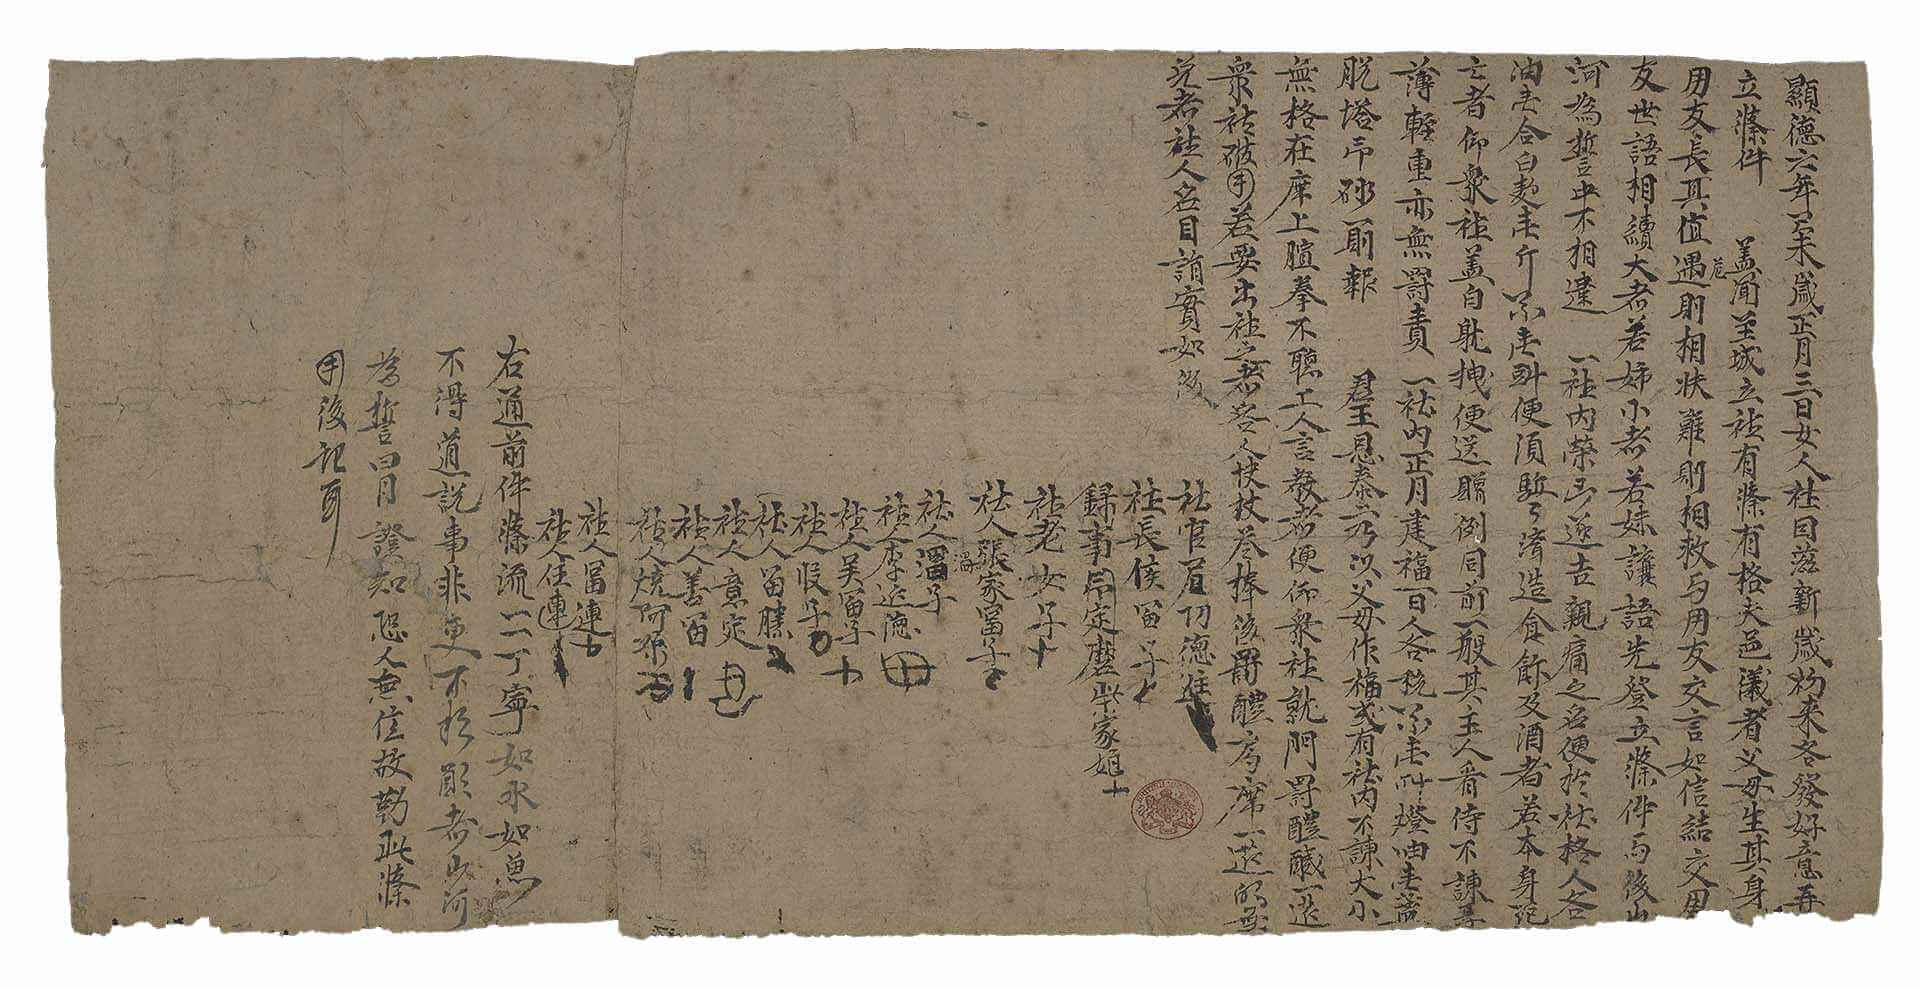 顯德六年己未歲正月三日女人社因滋新歲初來各發好意再
立條件　蓋聞至城立社有條有格夫邑儀者父母生其身
用友長其值遇危則相扶難則相救与用友交言如信結交用
友世語相續大者若姊小者若妹讓語先登立條件与後山
河為誓中不相違　一社內榮凶逐吉親痛之名便於社格人各
油壹合白麵壹斤粟壹斗便須驅々濟造食飯及酒者若本身死
亡者仰眾社蓋白躭拽便送贈例同前一般其主人看侍不諫厚
薄輕重亦無罰責　一社內正月建福一日人各稅粟壹斗燈油壹盞
脫塔印砂一則報　君王恩泰二乃以父母作福或有社內不諫大小
無格在席上諠拳不聽上人言教者便仰眾社就門罰醴醎一筵
眾社破用若要出社之者各人決杖叄棒後罰醴局席一筵的無
免者社人名目詣實如後
社官尼功德進
社長侯富子
錄事印定磨柴家娘
社老女子
社人張家富子
渦
社人富子
社人李延德
社人吳富子
社人段子
社人富勝
社人意定
社人善富
社人燒阿朵
社人富連
社人住連
右通前件條流一一丁寧如水如魚
不得道說事非更不於願者山河
為誓日月證知恐人無信故勒此條
用後記耳